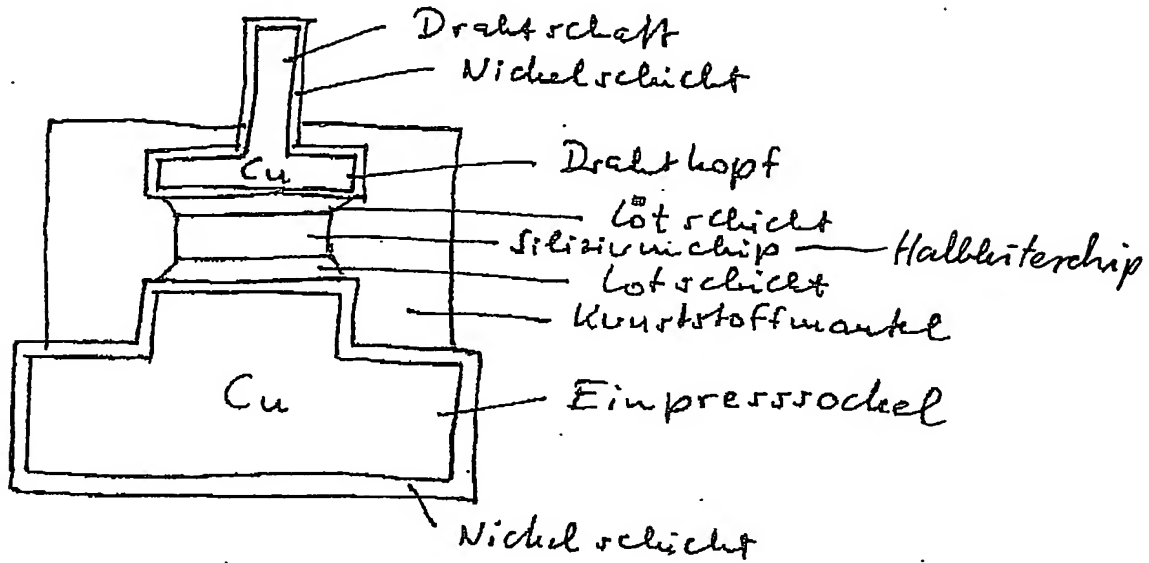 Drahtschaft
Nickelschicht
Cu
Drahtkopf
Lötschicht
Siliziumchip — Halbleiterchip
Lotschicht
Kunststoffmantel
Cu
Einpresssockel
Nickelschicht